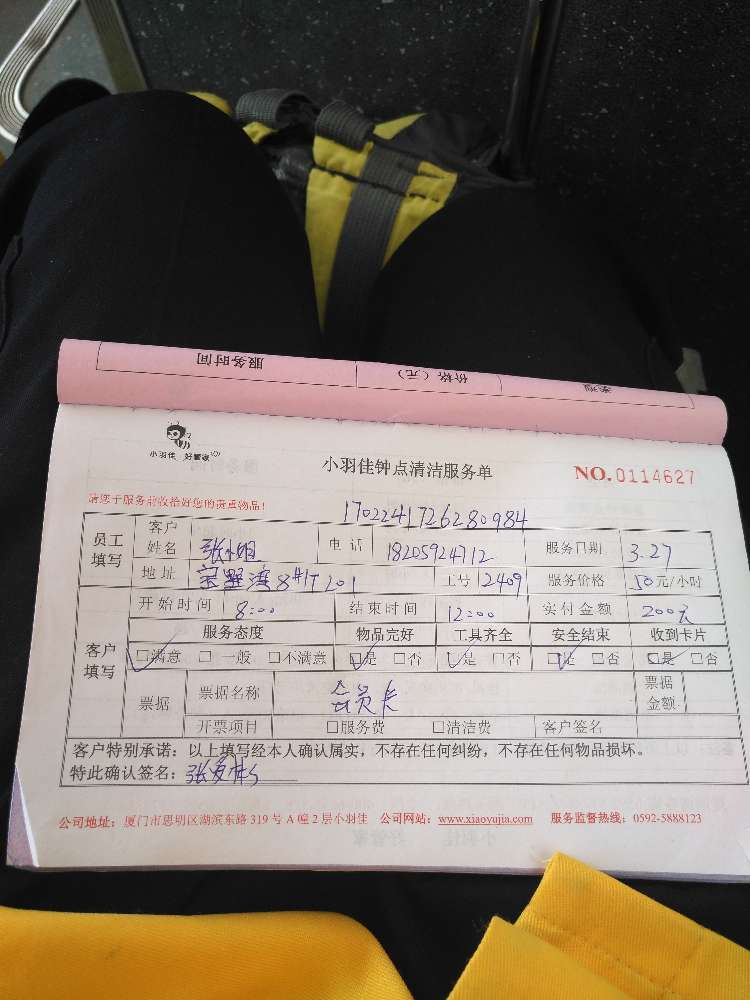 服务时间 价格（元）
小羽佳 好管家
小羽佳钟点清洁服务单
NO.0114627
请您于服务前收拾好您的贵重物品！
1702241726280984
员工填写 客户姓名 电话 18205924712 服务日期 3.27
地址 8#1T201 工号 2409 服务价格 50元/小时
客户填写 开始时间 8:00 结束时间 12:00 实付金额 200元
服务态度 物品完好 工具齐全 安全结束 收到卡片
□满意 □一般 □不满意 □是 □否 是 □否 □是 □否 □是 □否
票据 票据名称 会员卡 票据金额
开票项目 □服务费 □清洁费 客户签名
客户特别承诺：以上填写经本人确认属实，不存在任何纠纷，不存在任何物品损坏。
特此确认签名：
公司地址：厦门市思明区湖滨东路319号A幢2层小羽佳 公司网站：www.xiaoyujia.com 服务监督热线：0592-5888123